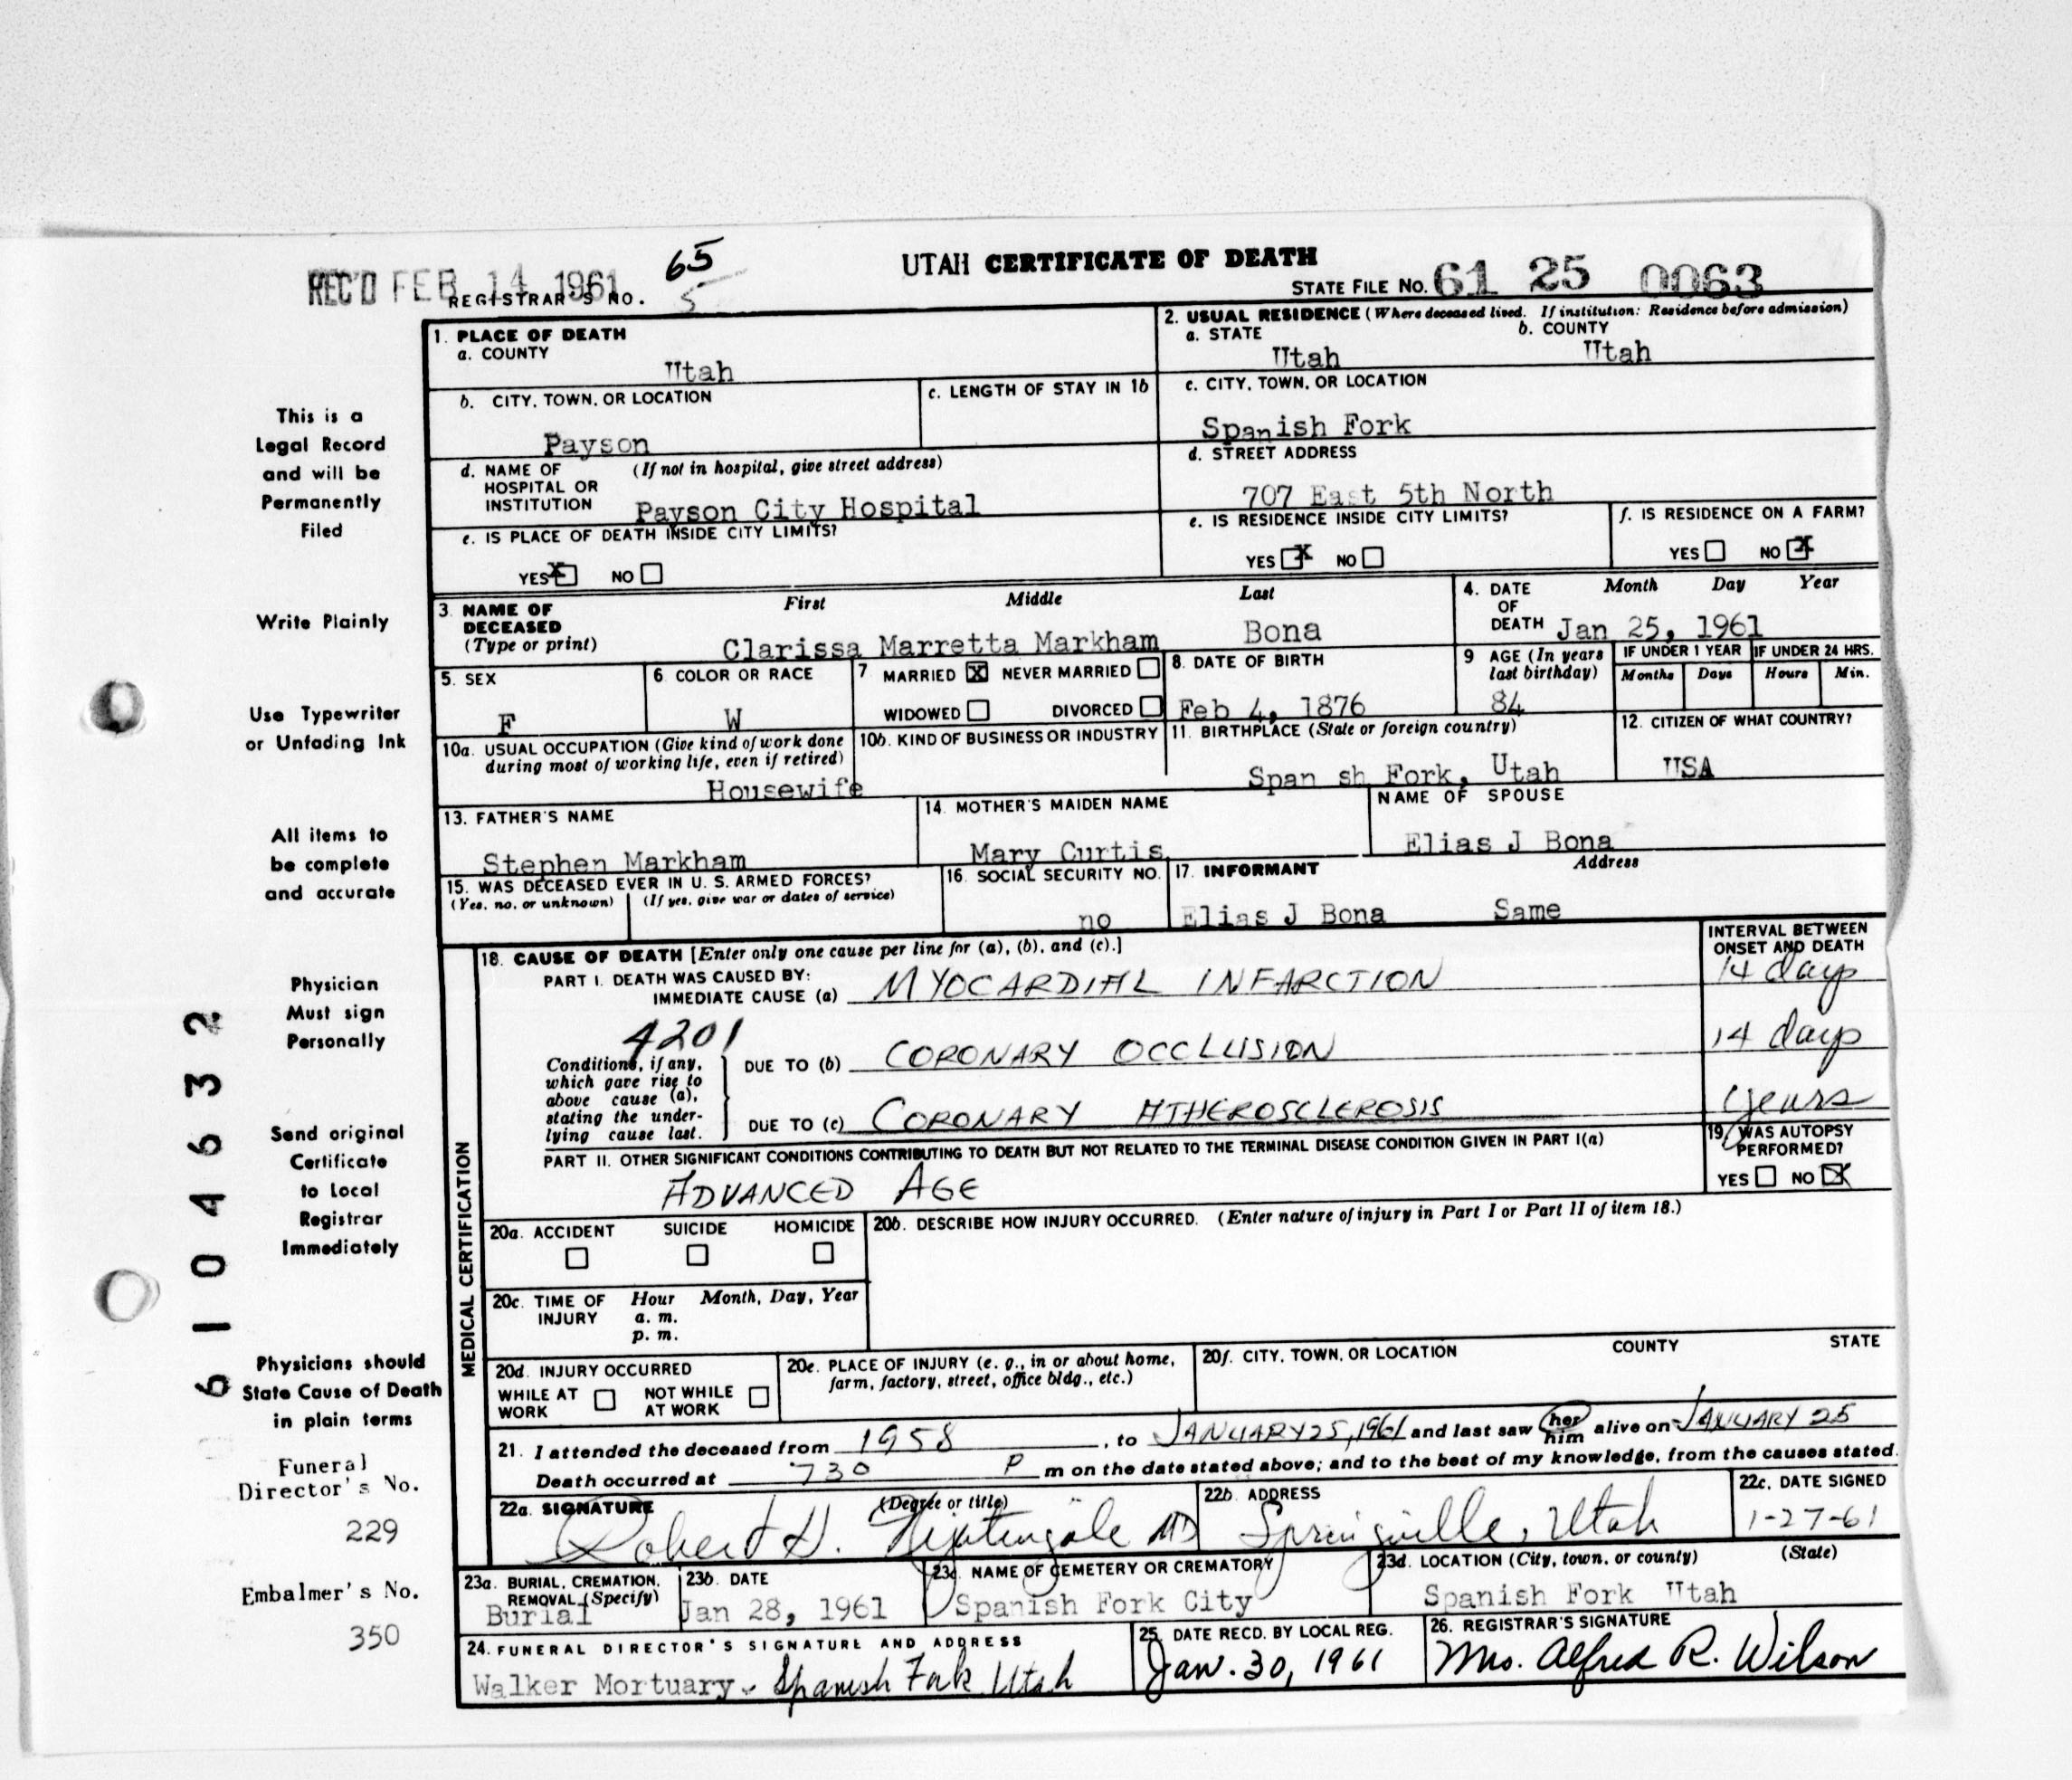 UTAH CERTIFICATE OF DEATH
REC'D FEB 14 1961
REGISTRAR'S NO. 65
5
STATE FILE NO. 61 25 0063
This is a
Legal Record
and will be
Permanently
Filed
Write Plainly
Use Typewriter
or Unfading Ink
All items to
be complete
and accurate
Physician
Must sign
Personally
Send original
Certificate
to Local
Registrar
Immediately
Physicians should
State Cause of Death
in plain terms
Funeral
Director's No.
229
Embalmer's No.
350
6104632
1. PLACE OF DEATH
a. COUNTY
Utah
b. CITY, TOWN, OR LOCATION
Payson
c. LENGTH OF STAY IN 1b
d. NAME OF HOSPITAL OR INSTITUTION (If not in hospital, give street address)
Payson City Hospital
e. IS PLACE OF DEATH INSIDE CITY LIMITS?
YES X NO
2. USUAL RESIDENCE (Where deceased lived. If institution: Residence before admission)
a. STATE
Utah
b. COUNTY
Utah
c. CITY, TOWN, OR LOCATION
Spanish Fork
d. STREET ADDRESS
707 East 5th North
e. IS RESIDENCE INSIDE CITY LIMITS?
YES X NO
f. IS RESIDENCE ON A FARM?
YES NO X
3. NAME OF DECEASED (Type or print)
First Middle Last
Clarissa Marretta Markham Bona
4. DATE OF DEATH Month Day Year
Jan 25, 1961
5. SEX
F
6. COLOR OR RACE
W
7 MARRIED X NEVER MARRIED
WIDOWED DIVORCED
8. DATE OF BIRTH
Feb 4, 1876
9 AGE (In years last birthday)
84
IF UNDER 1 YEAR
Months Days
IF UNDER 24 HRS.
Hours Min.
10a. USUAL OCCUPATION (Give kind of work done during most of working life, even if retired)
Housewife
10b. KIND OF BUSINESS OR INDUSTRY
11. BIRTHPLACE (State or foreign country)
Span sh Fork, Utah
12. CITIZEN OF WHAT COUNTRY?
USA
13. FATHER'S NAME
Stephen Markham
14. MOTHER'S MAIDEN NAME
Mary Curtis
NAME OF SPOUSE
Elias J Bona
15. WAS DECEASED EVER IN U. S. ARMED FORCES?
(Yes, no, or unknown) (If yes, give war or dates of service)
16. SOCIAL SECURITY NO.
no
17. INFORMANT Address
Elias J Bona Same
MEDICAL CERTIFICATION
18. CAUSE OF DEATH [Enter only one cause per line for (a), (b), and (c).]
INTERVAL BETWEEN ONSET AND DEATH
PART I. DEATH WAS CAUSED BY:
IMMEDIATE CAUSE (a) MYOCARDIAL INFARCTION 14 days
4201
Conditions, if any, which gave rise to above cause (a), stating the underlying cause last.
DUE TO (b) CORONARY OCCLUSION 14 days
DUE TO (c) CORONARY ATHEROSCLEROSIS years
PART II. OTHER SIGNIFICANT CONDITIONS CONTRIBUTING TO DEATH BUT NOT RELATED TO THE TERMINAL DISEASE CONDITION GIVEN IN PART I(a)
ADVANCED AGE
19. WAS AUTOPSY PERFORMED?
YES NO X
20a. ACCIDENT SUICIDE HOMICIDE
20b. DESCRIBE HOW INJURY OCCURRED. (Enter nature of injury in Part I or Part II of item 18.)
20c. TIME OF INJURY Hour Month, Day, Year
a. m.
p. m.
20d. INJURY OCCURRED
WHILE AT WORK NOT WHILE AT WORK
20e. PLACE OF INJURY (e. g., in or about home, farm, factory, street, office bldg., etc.)
20f. CITY, TOWN, OR LOCATION COUNTY STATE
21. I attended the deceased from 1958, to JANUARY 25, 1961 and last saw her him alive on JANUARY 25
Death occurred at 730 P m on the date stated above; and to the best of my knowledge, from the causes stated.
22a. SIGNATURE (Degree or title)
Robert H. Nightingale MD
22b. ADDRESS
Springville, Utah
22c. DATE SIGNED
1-27-61
23a. BURIAL, CREMATION, REMOVAL (Specify)
Burial
23b. DATE
Jan 28, 1961
23c. NAME OF CEMETERY OR CREMATORY
Spanish Fork City
23d. LOCATION (City, town, or county) (State)
Spanish Fork Utah
24. FUNERAL DIRECTOR'S SIGNATURE AND ADDRESS
Walker Mortuary. Spanish Fork Utah
25. DATE RECD. BY LOCAL REG.
Jan. 30, 1961
26. REGISTRAR'S SIGNATURE
Mrs. Alfred R. Wilson